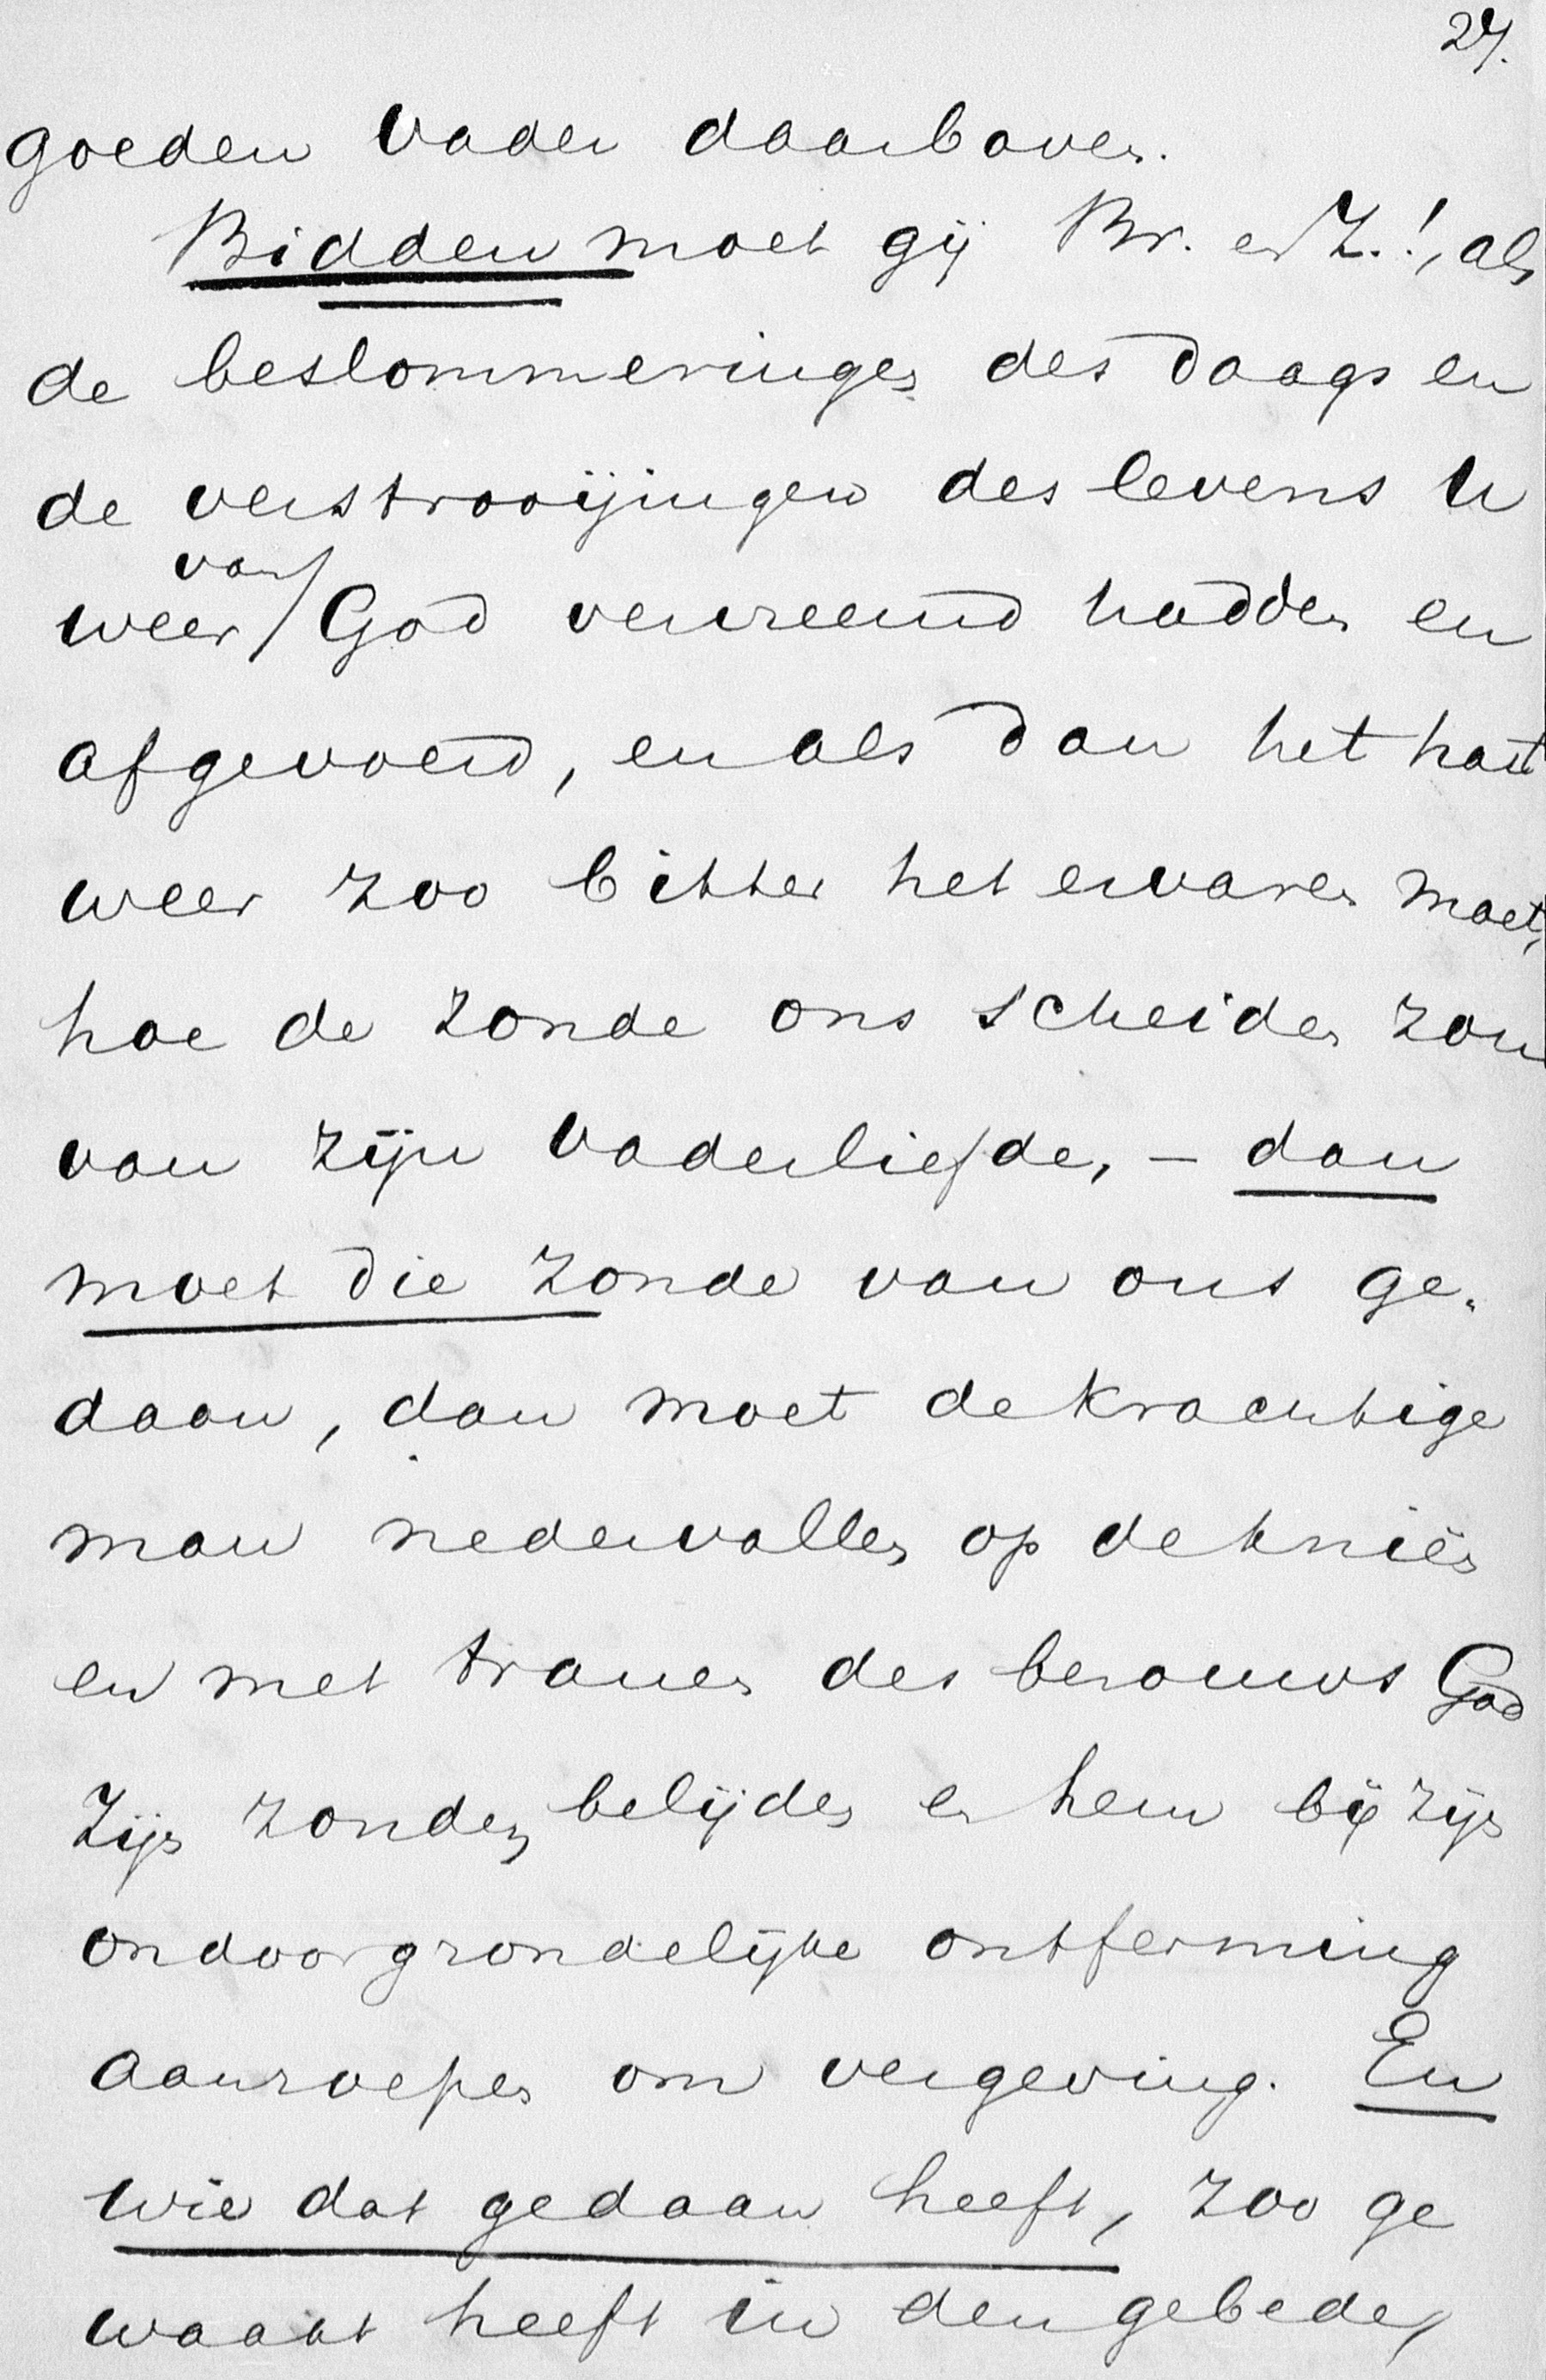 27.
goeden Vader daarboven.
Bidden moet gij Br. en Z.!, als
de beslommeringen des daags en
de verstrooijingen des levens U
van
weer / God vervreemd hadden en
afgevoerd, en als dan het hart
weer zoo bitter het ervaren moet,
hoe de zonde ons scheiden zou
van zijn Vaderliefde, – dan
moet die zonde van ons ge-
daan, dan moet de krachtige
man nedervallen op de kniën
en met tranen des berouws God
zijn zonden belijden en hem bij zijn
ondoorgrondelijke ontferming
aanroepen om vergeving. En
wie dat gedaan heeft, zoo ge
waakt heeft in den gebede,